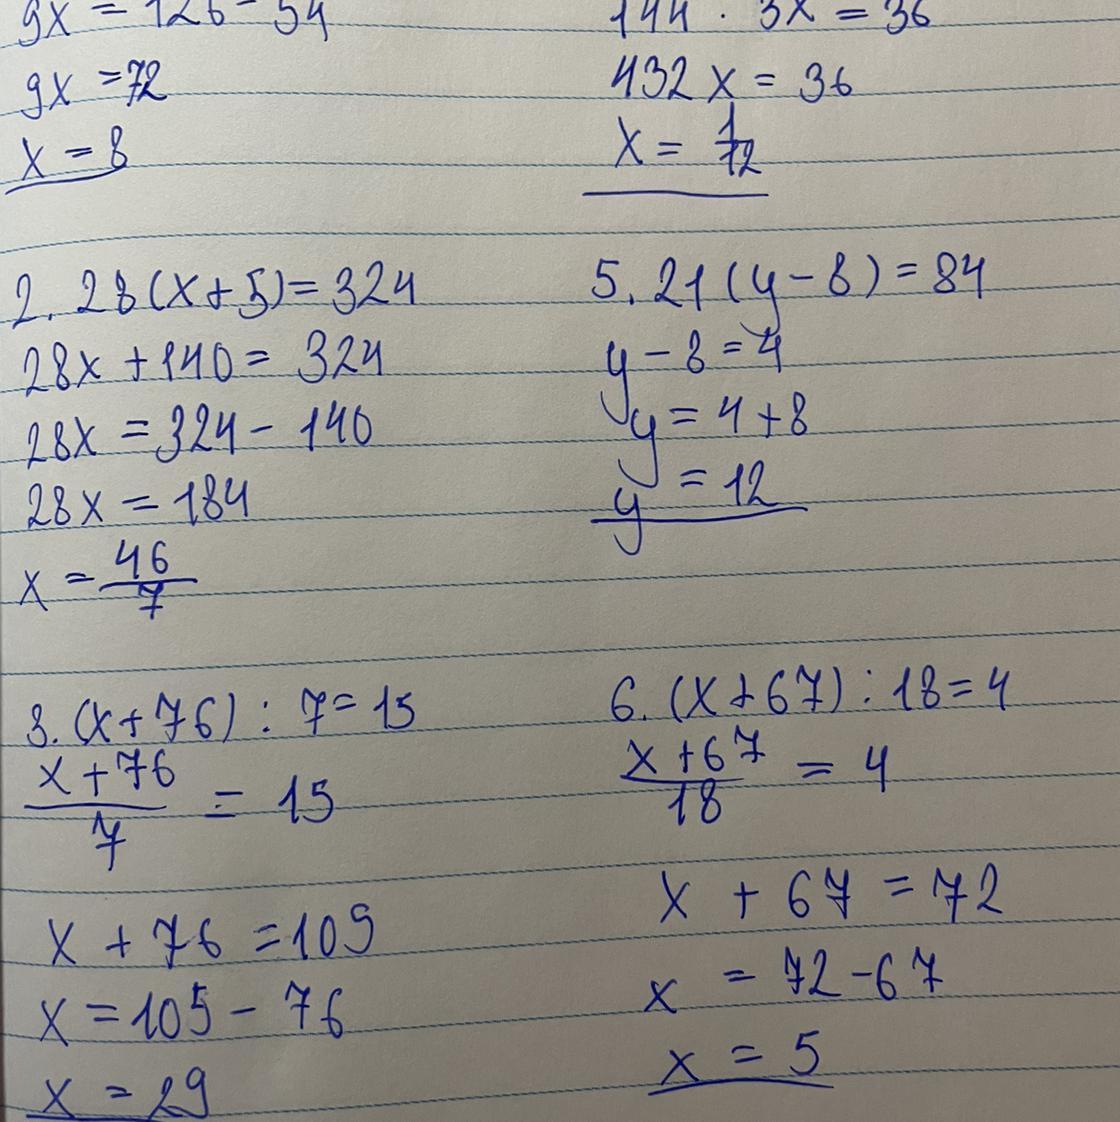 9x = 126 - 54
9x = 72
x = 8
2. 28(x+5)=324
28x + 140 = 324
28x = 324 - 140
28x = 184
x = 46/7
3. (x+76) : 7 = 15
x+76/7 = 15
x + 76 = 105
x = 105 - 76
x = 29
144 · 3x = 36
432x = 36
x = 1/72
5. 21(y-8) = 84
y - 8 = 4
y = 4 + 8
y = 12
6. (x+67) : 18 = 4
x+67/18 = 4
x + 67 = 72
x = 72 - 67
x = 5